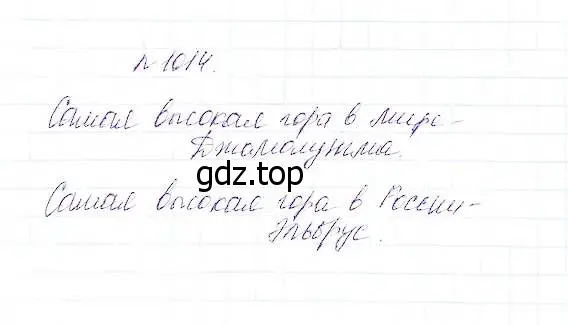 № 1014.
Самая высокая гора в мире -
Джомолунгма.
gdz.top
Самая высокая гора в России -
Эльбрус.